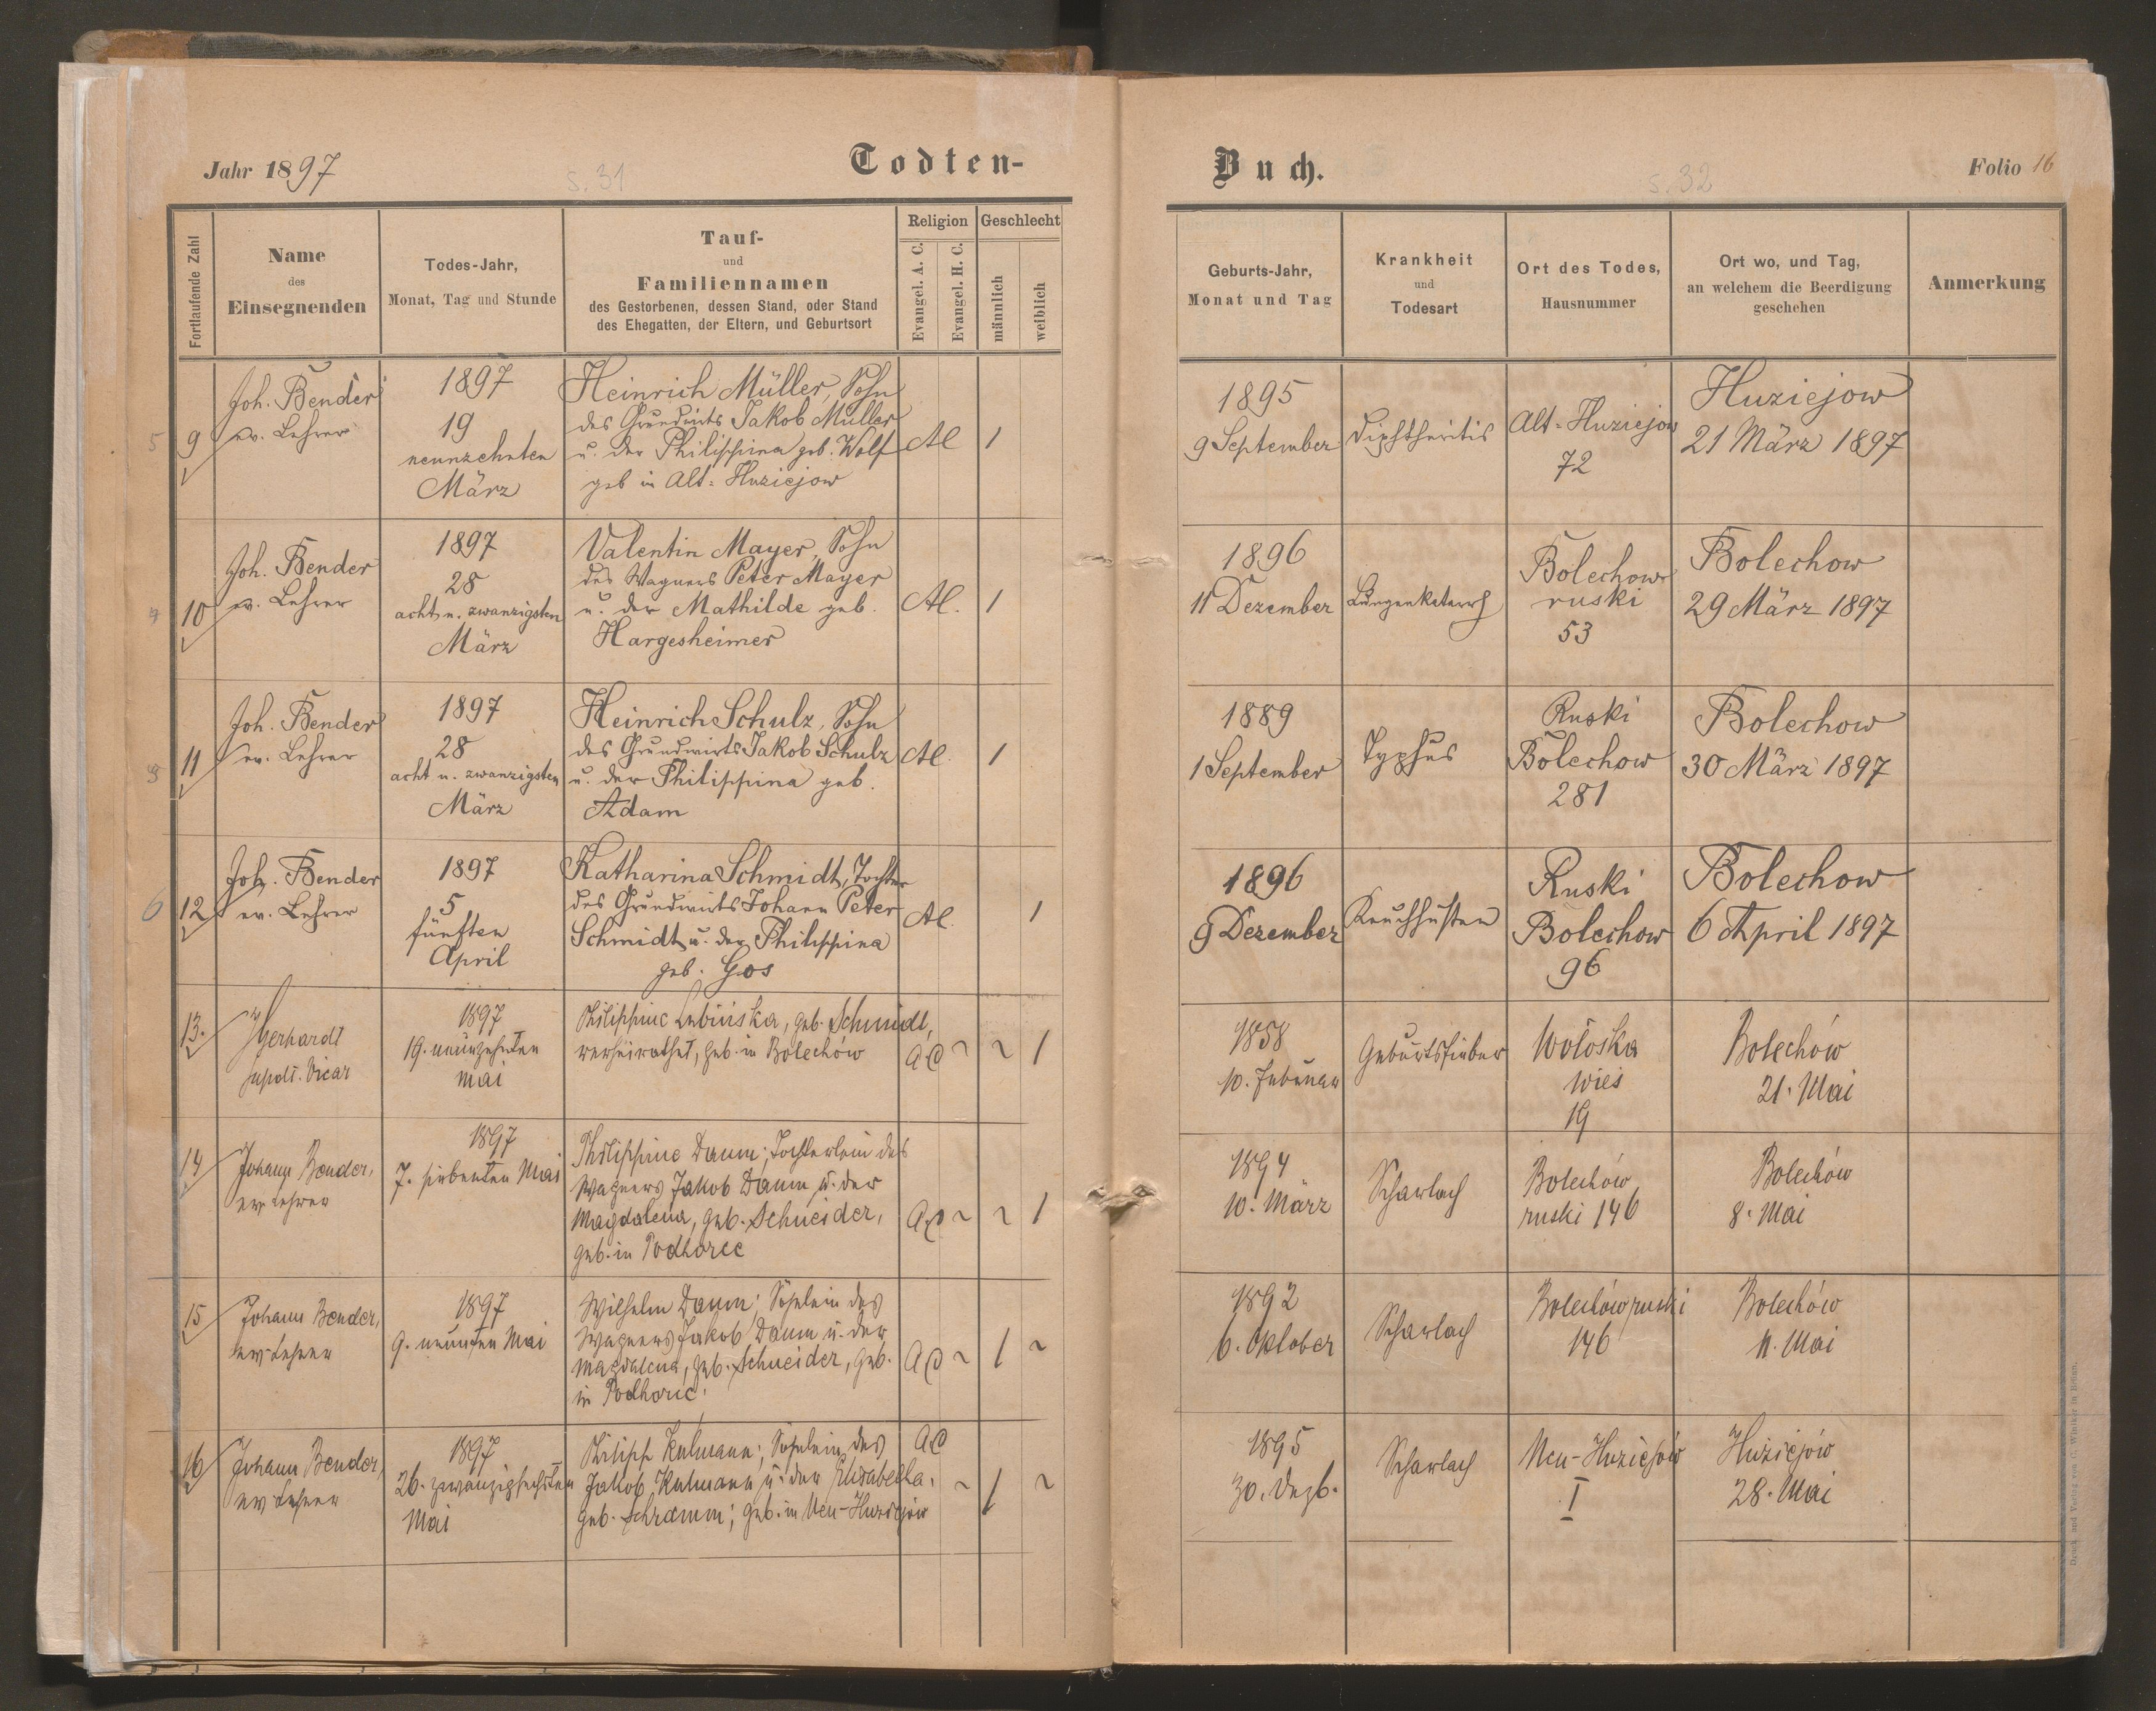 Jahr 1897
s. 31
Todten-
Fortlaufende Zahl
Name
des
Einsegnenden
Todes-Jahr,
Monat, Tag und Stunde
Tauf-
und
Familiennamen
des Gestorbenen, dessen Stand, oder Stand
des Ehegatten, der Eltern, und Geburtsort
Religion
Evangel. A. C.
Evangel. H. C.
Geschlecht
männlich
weiblich
5
9
Joh. Bender
ev. Lehrer
1897
19
neunzehnten
März
Heinrich Müller, Sohn
des Grundwirts Jakob Müller
u. der Philippina geb. Wolf
geb in Alt-Huziejow
AC
1
10
Joh. Bender
ev. Lehrer
1897
28
acht u. zwanzigsten
März
Valentin Mayer, Sohn
des Wagners Peter Mayer
u. der Mathilde geb.
Hargesheimer
AC.
1
11
Joh. Bender
ev. Lehrer
1897
28
acht u. zwanzigsten
März
Heinrich Schulz, Sohn
des Grundwirts Jakob Schulz
u. der Philippina geb.
Adam
AC.
1
6
12
Joh. Bender
ev. Lehrer
1897
5
fünften
April
Katharina Schmidt, Tochter
des Grundwirts Johann Peter
Schmidt u. der Philippina
geb. Gos
AC.
1
13.
Gerhardt
Vicar
1897
19. neunzehnten
Mai
Philippine Lubinska, geb. Schmidt,
verheirathet, geb. in Bolechów
AC ~ ~ 1
14
Johann Bender,
ev Lehrer
1897
7. siebenten Mai
Philippine Daum; Töchterlein des
Wagners Jakob Daum u. der
Magdalena, geb. Schneider,
geb. in Podhorce
AC ~ ~ 1
15
Johann Bender,
ev Lehrer
1897
9. neunten Mai
Wilhelm Daum; Söhnlein des
Wagners Jakob Daum u. der
Magdalena, geb. Schneider, geb.
in Podhorce.
AC ~ 1 ~
16
Johann Bender,
ev Lehrer
1897
26. zwanzigsechsten
Mai
Philipp Kulmann; Söhnlein des
Jakob Kulmann u. der Elisabetha,
geb. Schramm; geb. in Neu-Huziejów
AC
~ 1 ~
Buch.
s. 32
Folio 16
Geburts-Jahr,
Monat und Tag
Krankheit
und
Todesart
Ort des Todes,
Hausnummer
Ort wo, und Tag,
an welchem die Beerdigung
geschehen
Anmerkung
1895
9 September
Diphtheritis
Alt-Huziejow
72
Huziejow
21 März 1897
1896
11 Dezember
Lungenkatarrh
Bolechow
ruski
53
Bolechow
29 März 1897
1889
1 September
Typhus
Ruski
Bolechow
281
Bolechow
30 März 1897
1896
9 Dezember
Keuchhusten
Ruski
Bolechow
96
Bolechow
6 April 1897
1858
10. Februar
Geburtsfieber
Wołoska
wieś
19
Bolechów
21. Mai
1894
10. März
Scharlach
Bolechów
ruski 146
Bolechów
8. Mai
1892
6. Oktober
Scharlach
Bolechów ruski
146
Bolechów
11. Mai
1895
30. Dezb.
Scharlach
Neu-Huziejów
I
Huziejów
28. Mai
Druck und Verlag von C. Winiker in Brünn.